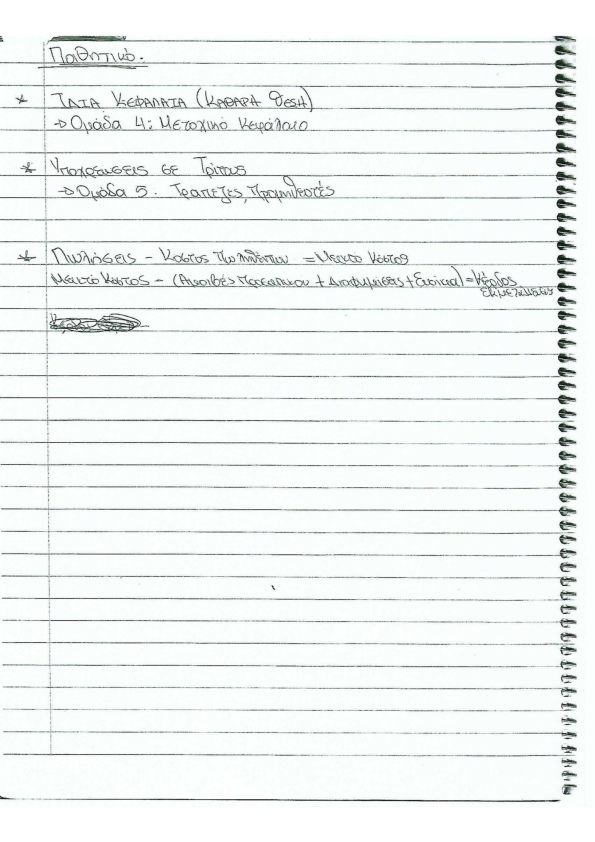 Παθητικό.
* Ίδια Κεφάλαια (Καθαρή Θέση)
→ Ομάδα 4: Μετοχικό Κεφάλαιο
* Υποχρεώσεις σε Τρίτους
→ Ομάδα 5. Τράπεζες, Προμηθευτές
* Πωλήσεις - Κόστος Πωληθέντων = Μεικτό Κέστος
Μεικτό Κόστος - (Αμοιβές Προσωπικού + Διαφημίσεις + Ενοίκια) = Κέρδος
Εκμετάλλευσης